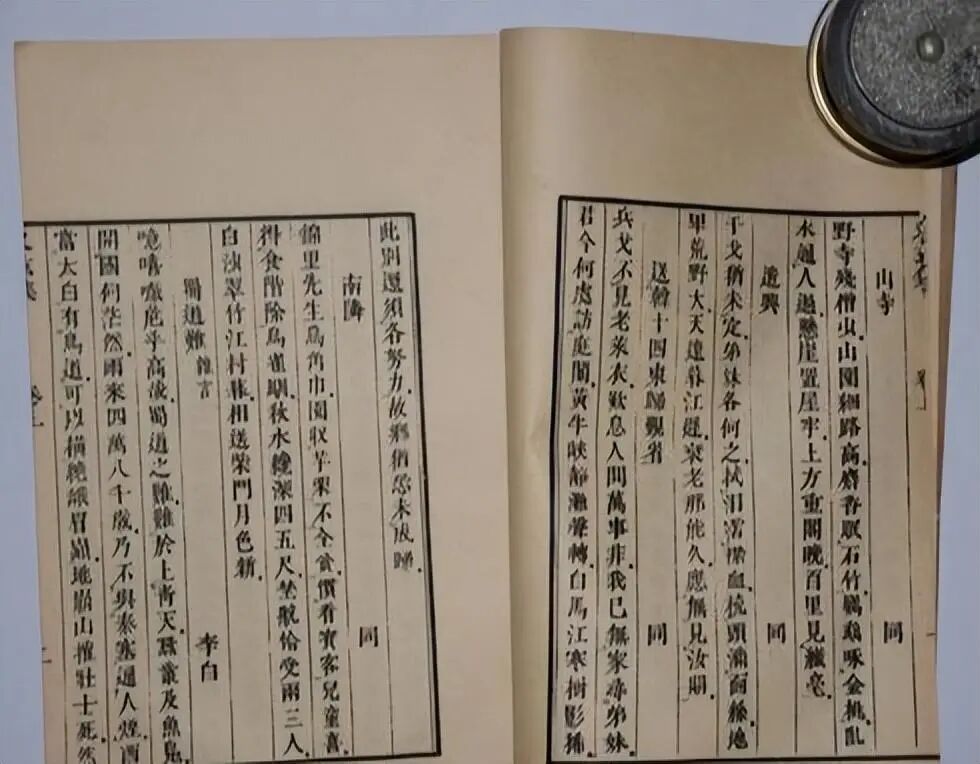 山寺 同
野寺殘僧少山園細路高麝香眠石竹鸚鵡啄金桃亂
水通人過懸崖置屋牢上方重閣晚百里見纖毫
遣興 同
干戈猶未定弟妹各何之拭泪沾襟血梳頭滿面絲地
卑荒野大天遠暮江遲衰老那能久應無見汝期
送韓十四東歸覲省 同
兵戈不見老萊衣歎息人間萬事非我已無家尋弟妹
君今何處訪庭闈黃牛峽靜灘聲轉白馬江寒樹影稀
此別還須各努力故鄉猶恐未成歸
南隣 同
錦里先生烏角巾園收芋栗不全貧慣看賓客兒童喜
得食階除鳥雀馴秋水纔深四五尺坐航恰受兩三人
白沙翠竹江村暮相送柴門月色新
蜀道難 雜言 李白
噫嘻嚱危乎高哉蜀道之難難於上青天蠶叢及魚鳧
開國何茫然爾來四萬八千歲乃不與秦塞通人煙西
當大白有鳥道可以橫絶峨眉巔地崩山摧壯士死然